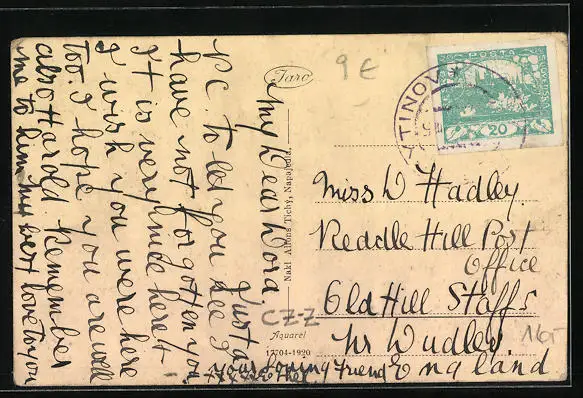 My Dear Dora
Just a
P.C. to let you see I
have not forgotten you
It is very nice here &
I wish you were here
too. I hope you are well
also Harold. Remember
me to him my best love to you
your loving Friend
Faro
Nakl. Alfons Tichý, Napajedla.
Aquarel
17704-1920
9 €
CZ-Z
16,-
POŠTA
ČESKO-SLOVENSKÁ
20
YTINOV
Miss D Hadley
Reddle Hill Post
Office
Old Hill Staffs
Nr Dudley
England